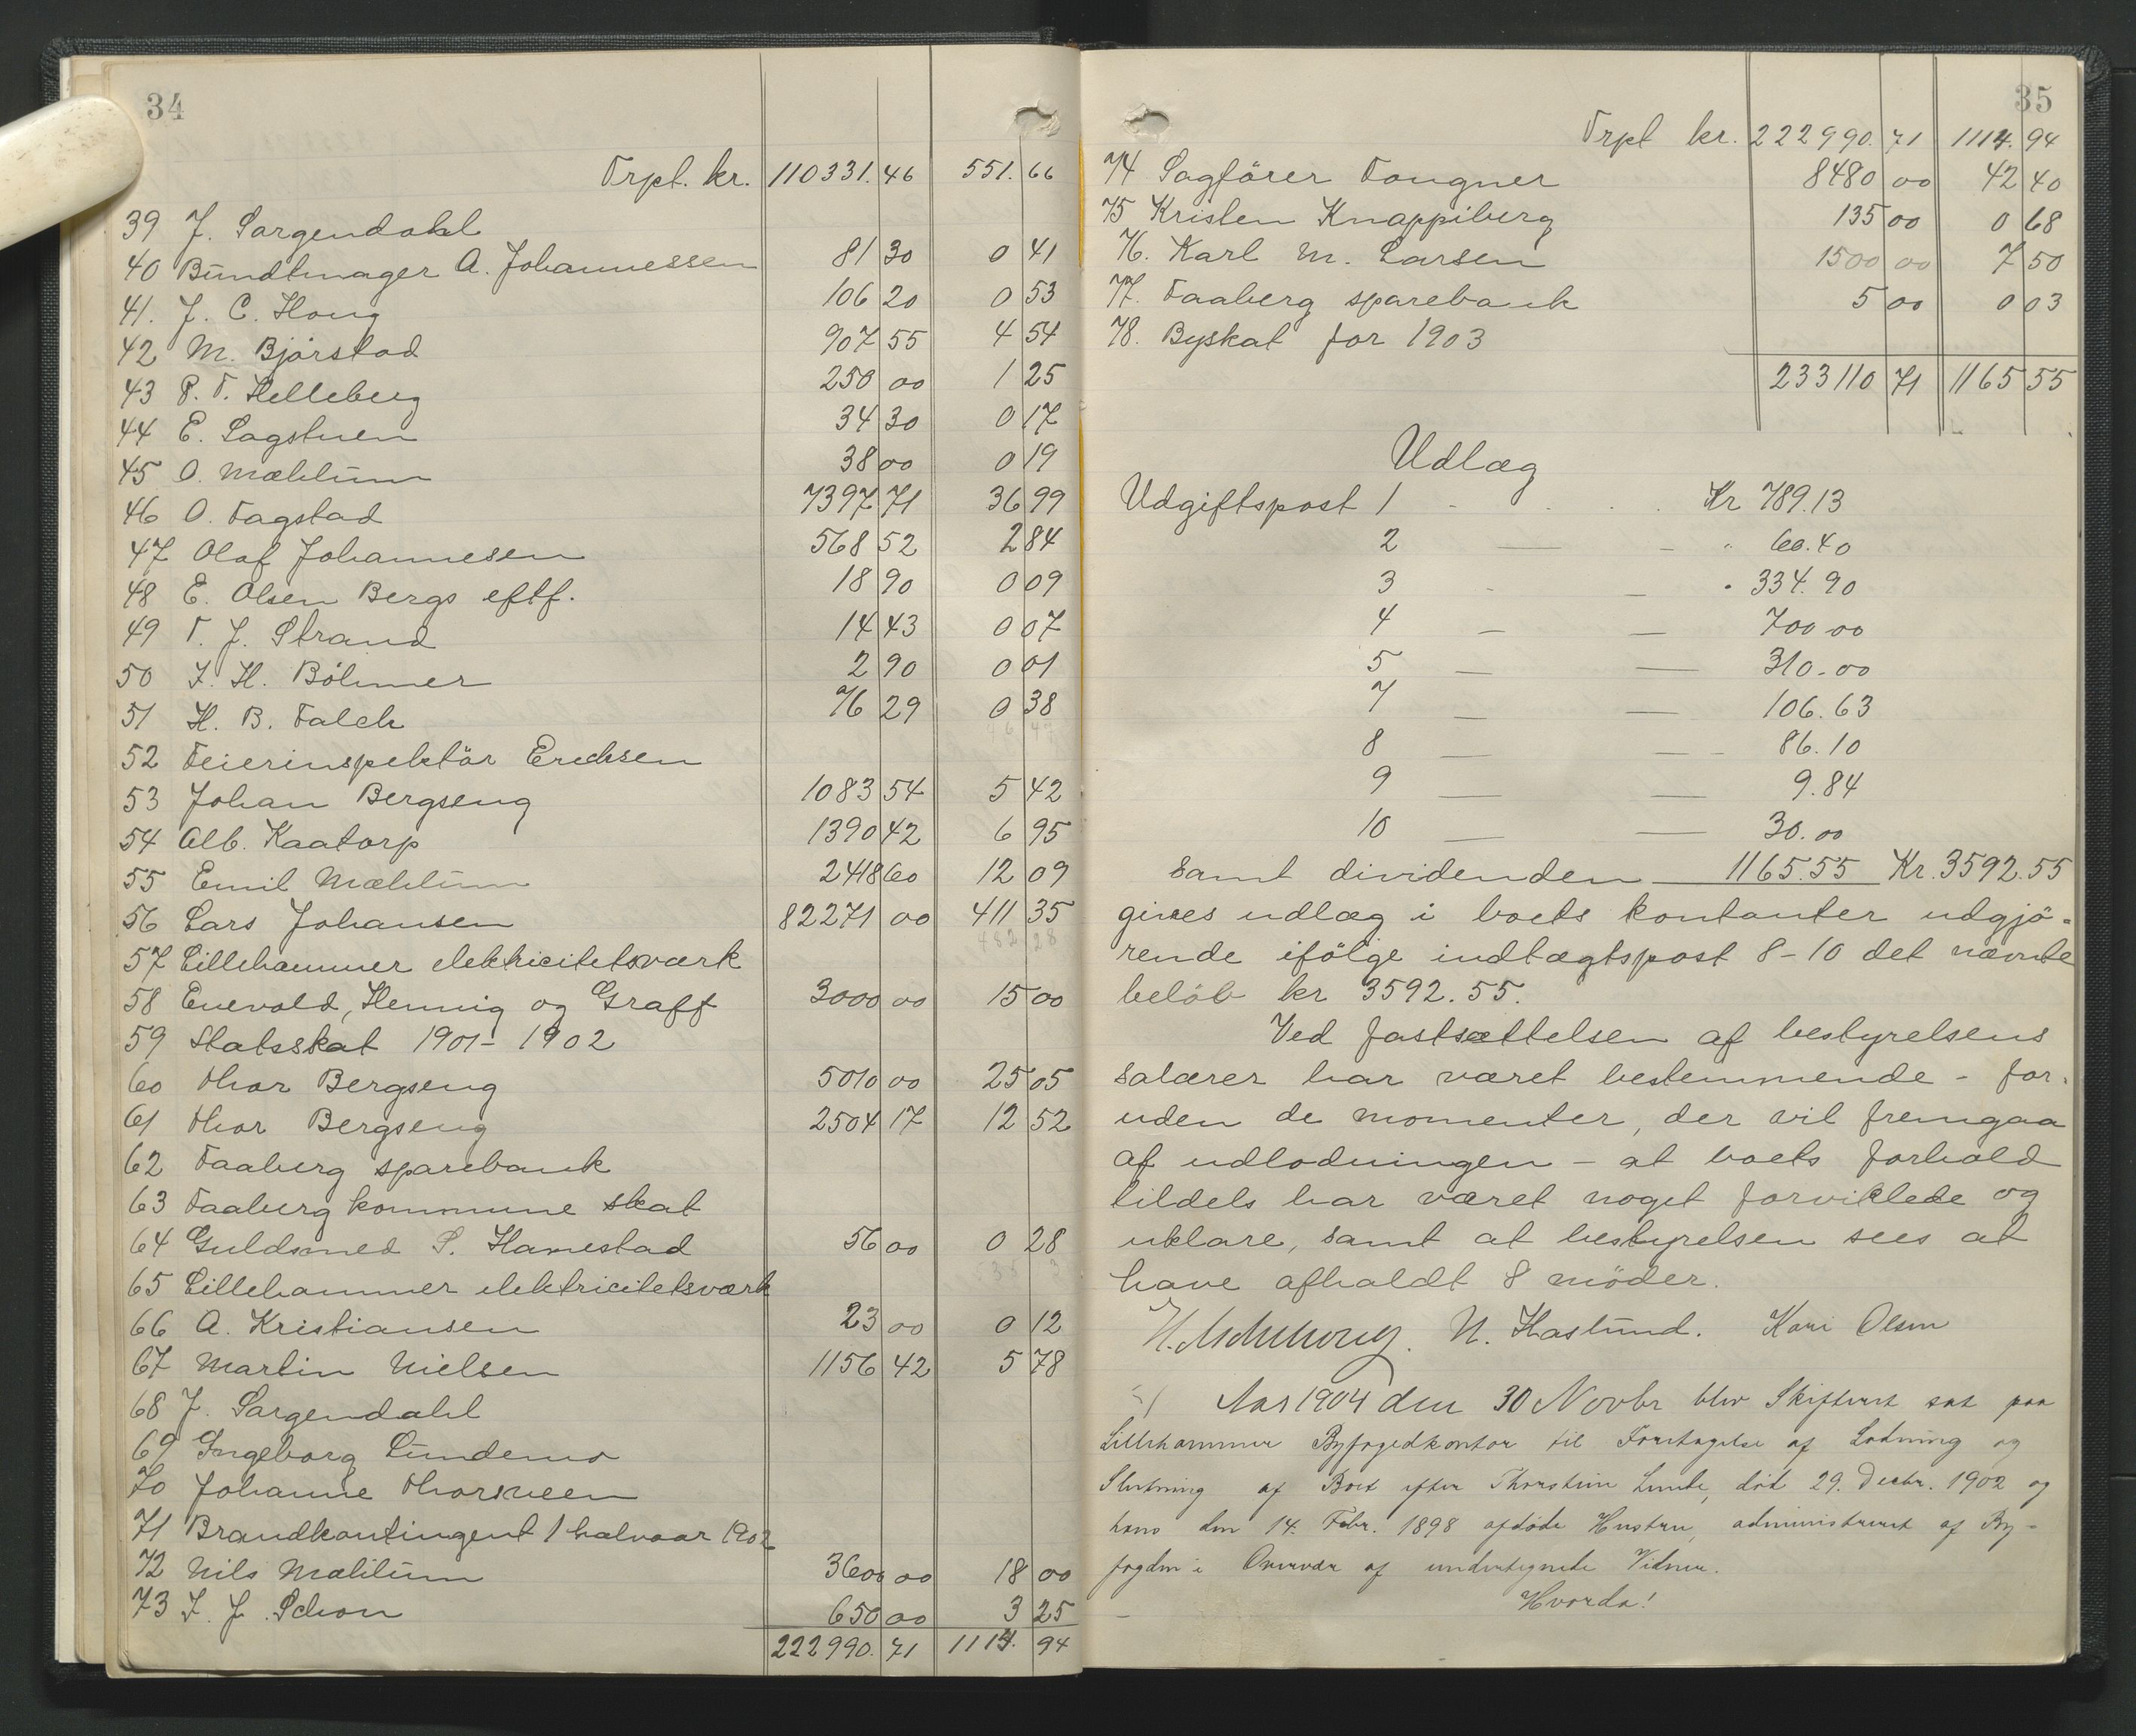 34
Trpt. kr. 110331.46 551.66
39 J. Sørgendahl
40 Bundtmager A. Johannessen 81 30 0 41
41. J. C. Houg 106 20 0 53
42 M. Bjørstad 907 55 4 54
43 P. T. Helleberg 250 00 1 25
44 E. Sagstuen 34 30 0 17
45 O. Mæhlum 38 00 0 19
46 O. Fagstad 7397 71 36 99
47 Olaf Johannesen 568 52 2 84
48 E. Olsen Bergs eftf. 18 90 0 09
49 T. J. Strand 14 43 0 07
50 F. H. Böhmer 2 90 0 01
51 H. B. Falck 76 29 0 38
52 Feierinspektør Erichsen
53 Johan Bergseng 1083 54 5 42
54 Alb. Kaatorp 1390 42 6 95
55 Emil Mæhlum 2418 60 12 09
56 Lars Johansen 82271 00 411 35
57 Lillehammer elektricitetsværk
58 Enevold, Hennig og Graff 3000 00 15 00
59 Statsskat 1901-1902
60 Thor Bergseng 5010 00 25 05
61 Thor Bergseng 2504 17 12 52
62 Faaberg sparebank
63 Faaberg kommune skat
64 Guldsmed S. Hamestad 56 00 0 28
65 Lillehammer elektricitetsværk
66 A. Kristiansen 23 00 0 12
67 Martin Nielsen 1156 42 5 78
68 J. Sørgendahl
69 Ingeborg Lundemo
70 Johanne Thorsveen
71 Brandkontingent 1 halvaar 1902
72 Nils Mæhlum 3600 00 18 00
73 F. J. Schou 650 00 3 25
222990. 71 1114. 94
35
Trpt kr. 222990. 71 1114. 94
74 Sagfører Fougner 8480 00 42 40
75 Kristen Knappiberg 135 00 0 68
76. Karl M. Larsen 1500 00 7 50
77. Faaberg sparebank 5 00 0 03
78. Byskat for 1903
233110 71 1165 55
Udlæg
Udgiftspost 1 Kr 789.13
2 — " 60.40
3 — " 334.90
4 — 700.00
5 — 310.00
7 — 106.63
8 — 86.10
9 — 9.84
10 — 30.00
samt dividenden 1165.55 Kr. 3592.55
gives udlæg i boets kontanter udgjø-
rende ifølge indtægtspost 8-10 det nævnte
beløb kr 3592.55.
Ved fastsættelsen af bestyrelsens
salærer har været bestemmende - for-
uden de momenter, der vil fremgaa
af udlodningen - at boets forhold
tildels har været noget forviklede og
uklare, samt at bestyrelsen sees at
have afholdt 8 møder.
N. Haslund. Kari Olsen
Aar 1904 den 30 Novbr blev Skifteret sat paa
Lillehammer Byfogedkontor til Foretagelse af Lodning og
Slutning af Boet efter Thorstein Lunde, død 29. Decbr. 1902 og
hans den 14. Febr. 1898 afdøde Hustru, administreret af By-
fogden i Overvær af undertegnede Vidner.
Hvorda!